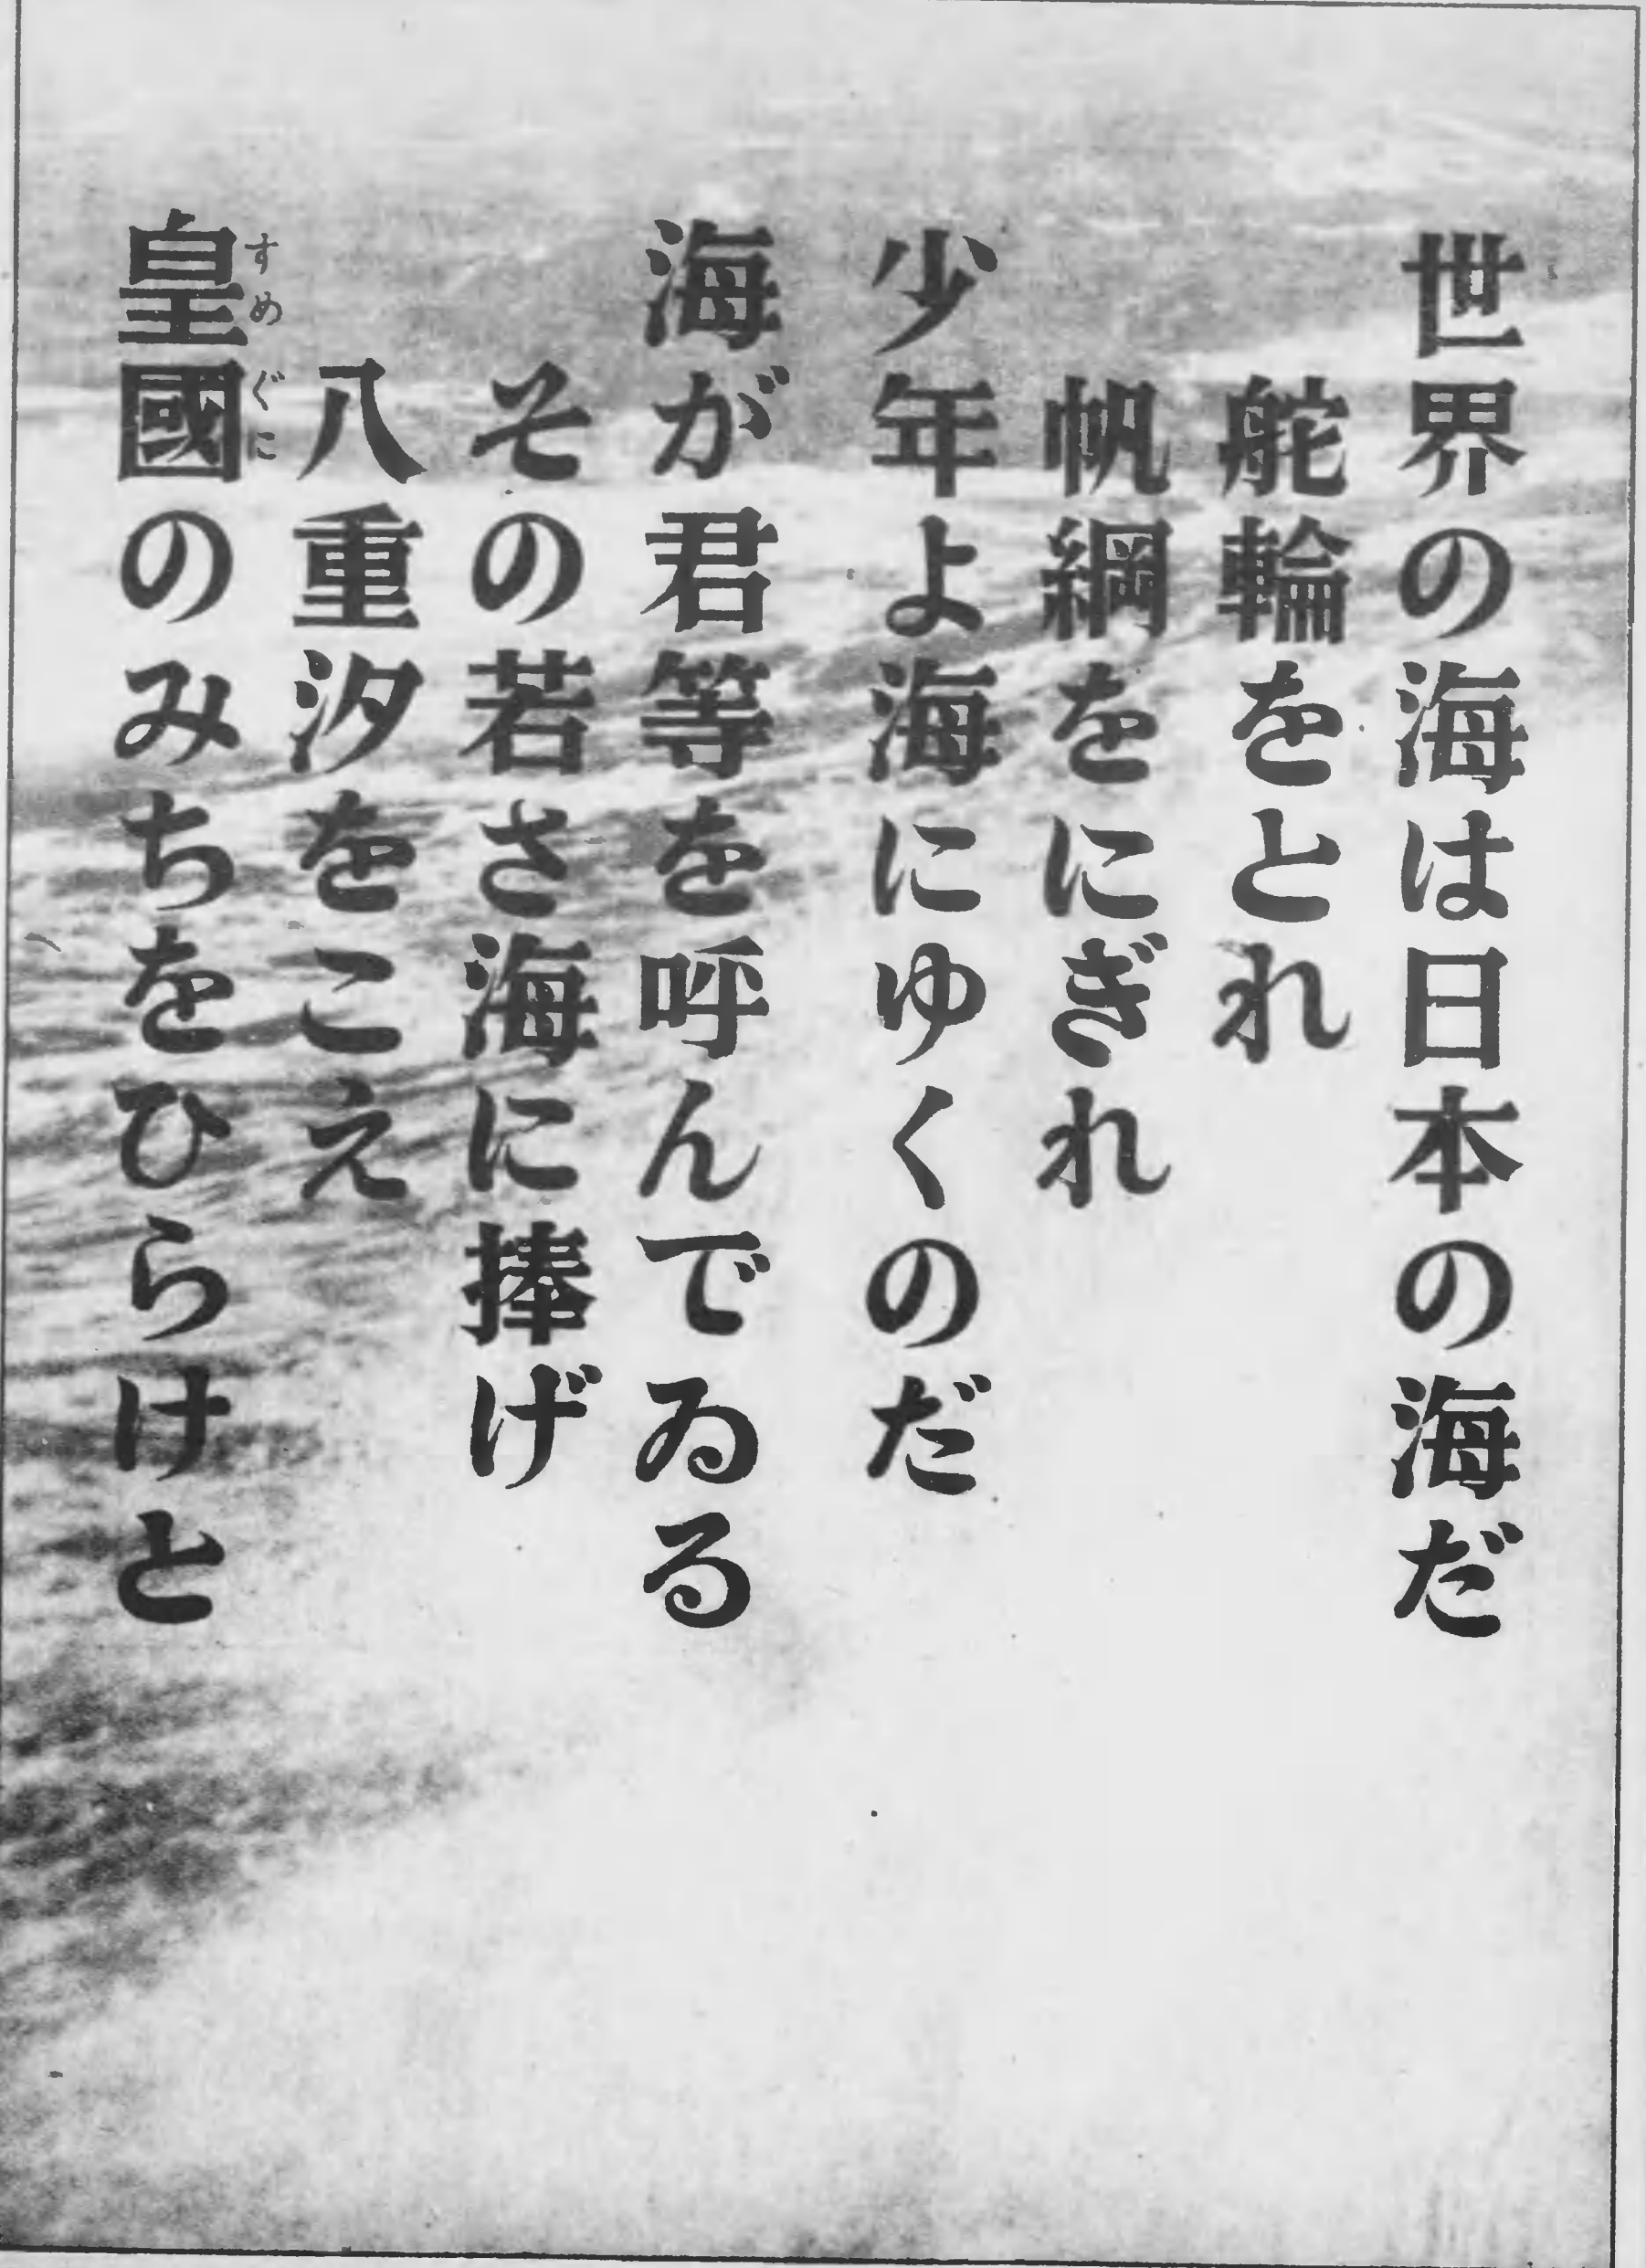 世界の海は日本の海だ
舵輪をとれ
帆綱をにぎれ
少年よ海にゆくのだ
海が君等を呼んでゐる
その若さ海に捧げ
八重汐をこえ
皇國のみちをひらけと
すめぐに